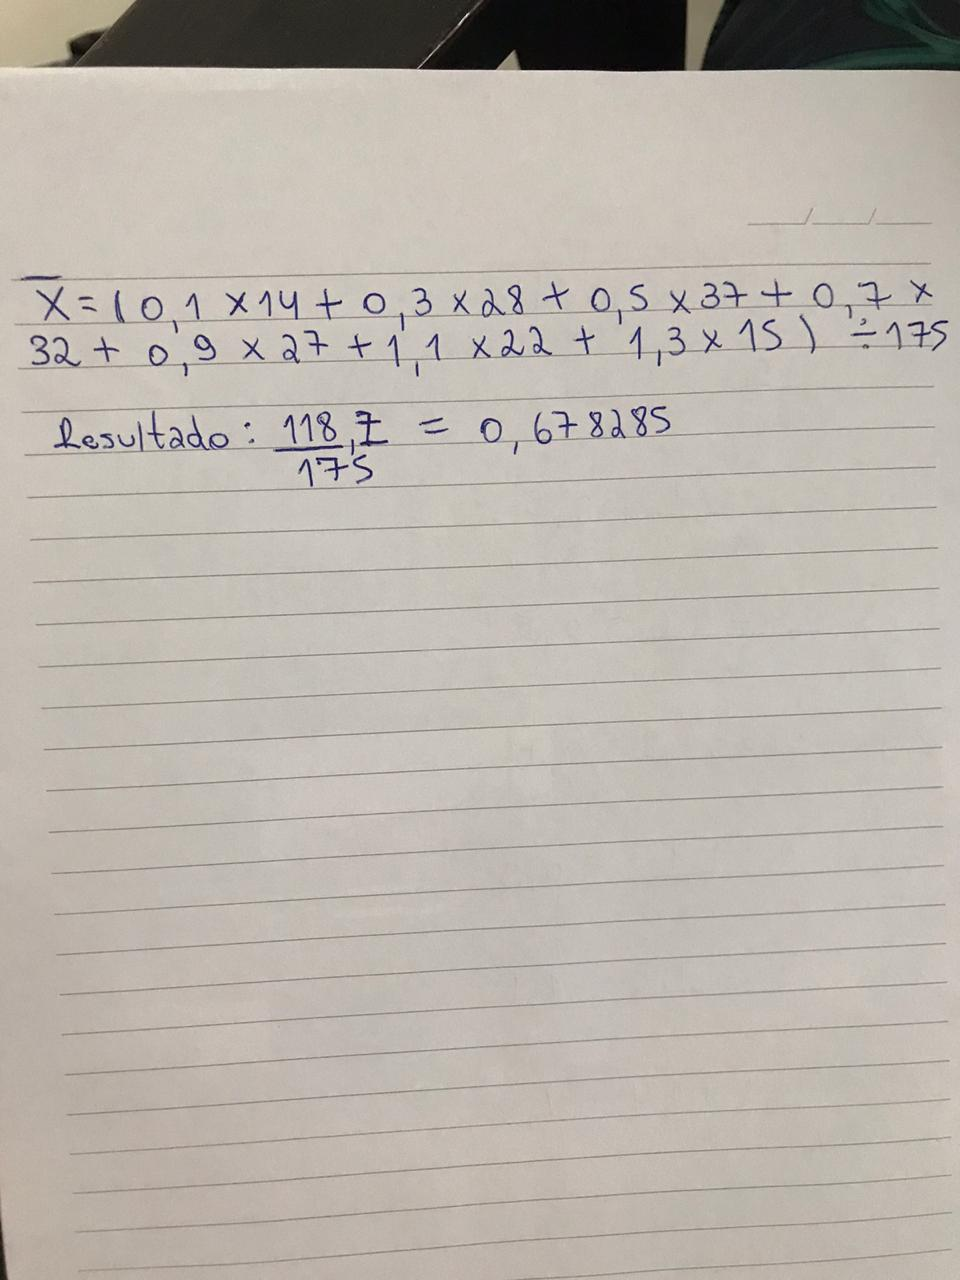 X̅ = ( 0,1 × 14 + 0,3 × 28 + 0,5 × 37 + 0,7 ×
32 + 0,9 × 27 + 1,1 × 22 + 1,3 × 15 ) ÷ 175
Resultado : 118,7 = 0,678285
175